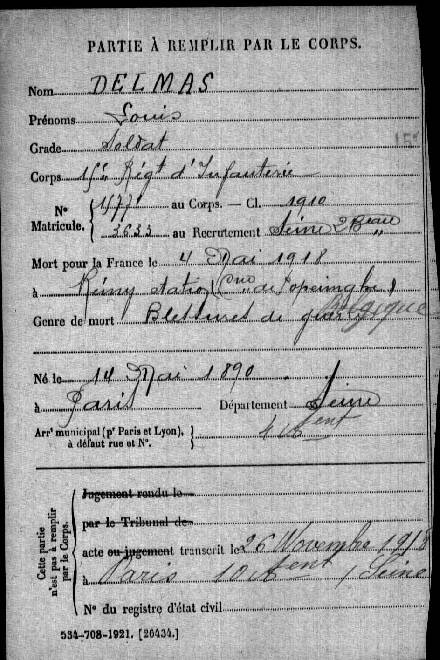 PARTIE À REMPLIR PAR LE CORPS.
Nom DELMAS
Prénoms Louis
Grade Soldat
Corps 15e Régt d'Infanterie
N° Matricule. { 1577 au Corps. — Cl. 1910
3633 au Recrutement Seine 2e Beau
Mort pour la France le 4 Mai 1918
à Rémy station (Cne de Popeinghe)
Belgique
Genre de mort Blessures de guerre
Né le 14 Mai 1890
à Paris Département Seine
Arrt municipal (pr Paris et Lyon), à défaut rue et N°. }
Cette partie n'est pas à remplir par le Corps.
Jugement rendu le
par le Tribunal de
acte ou jugement transcrit le 26 Novembre 191
à Paris 10e Seine
N° du registre d'état civil
534-708-1921. [26434.]